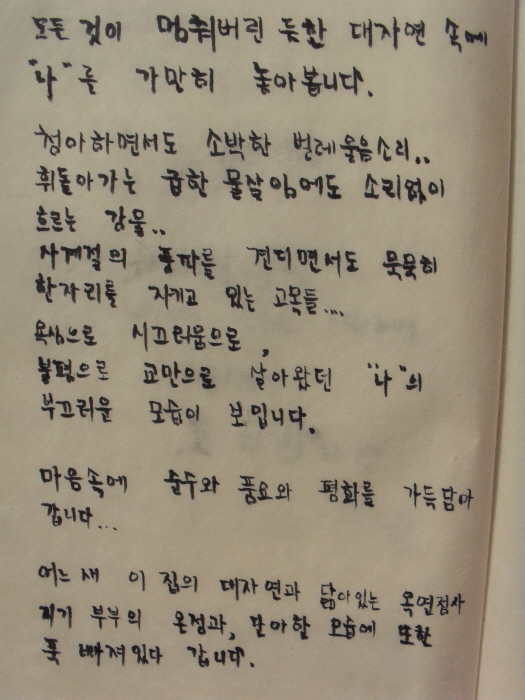 모든 것이 멈춰버린 듯한 대자연 속에
"나"를 가만히 놓아봅니다.
청아하면서도 소박한 벌레울음소리..
휘돌아가는 급한 물살임에도 소리없이
흐르는 강물..
사계절의 풍파를 견디면서도 묵묵히
한자리를 지키고 있는 고목들....
욕심으로 시끄러움으로,
불평으로 교만으로 살아왔던 "나"의
부끄러운 모습이 보입니다.
마음속에 순수와 풍요와 평화를 가득담아
갑니다...
어느새 이 집의 대자연과 닮아있는 옥연정사
지기 부부의 온정과, 단아한 모습에 또한
푹 빠져있다 갑니다.